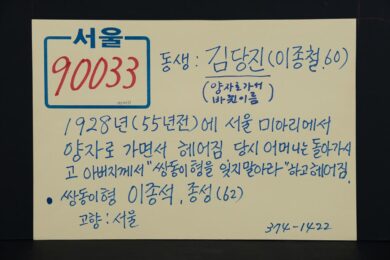 서울
90033
동생: 김당진(이종철.60)
(양자로가서
바뀐이름)
1928년(55년전)에 서울 미아리에서
양자로 가면서 헤어짐 당시 어머니는 돌아가시
고 아버지께서 "쌍둥이형을 잊지말아라"하고헤어짐.
• 쌍둥이형 이종석, 종성(62)
고향: 서울
374-1422